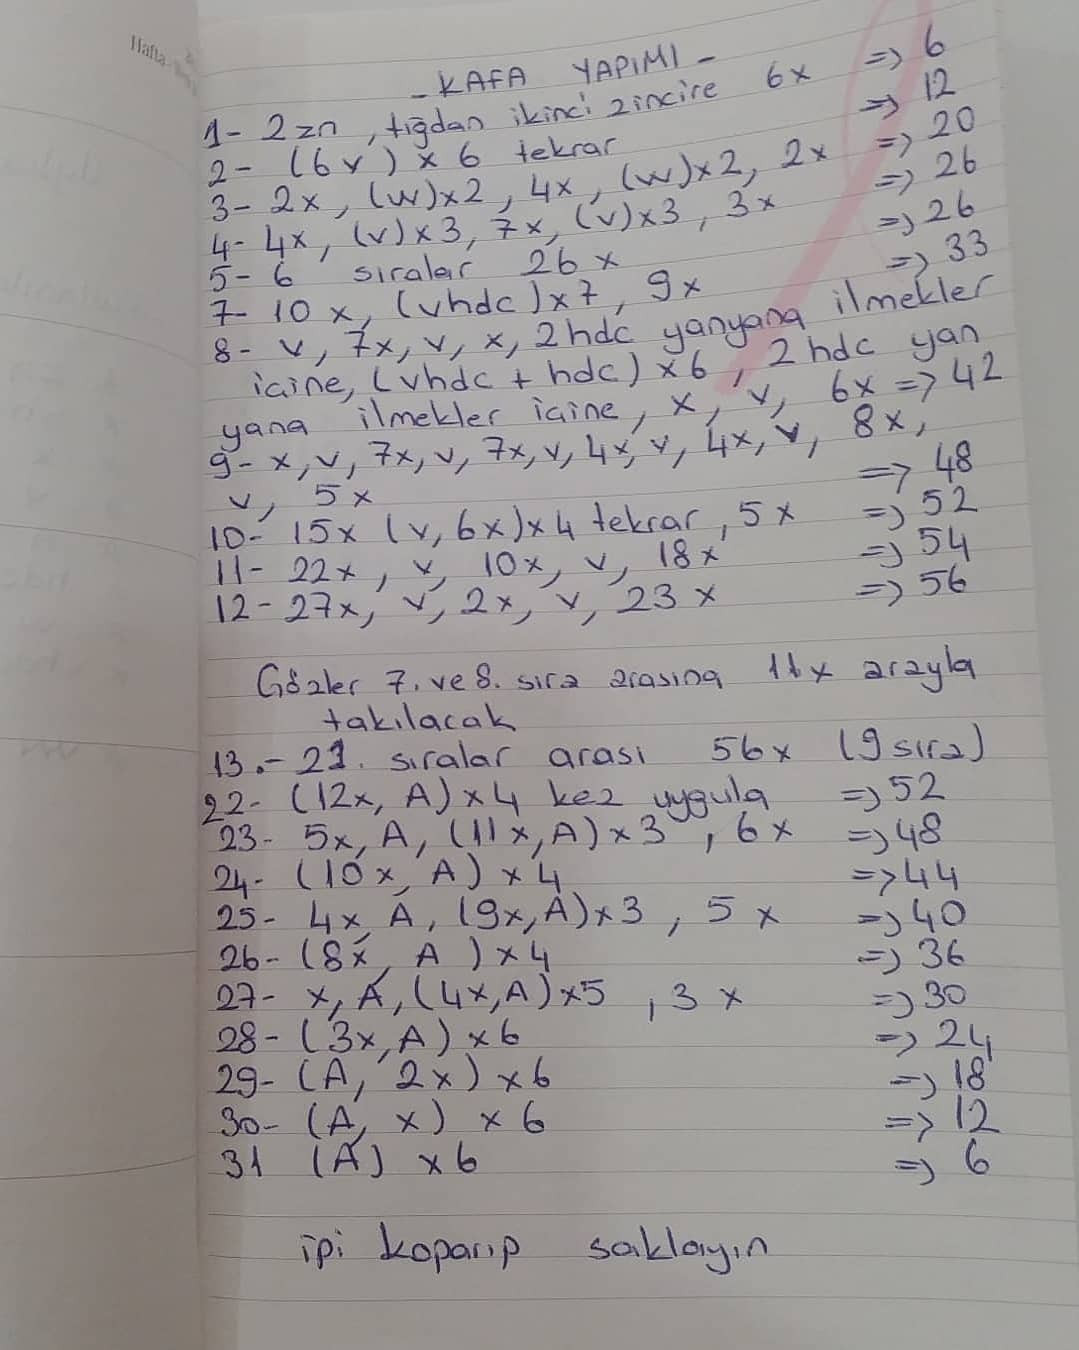 Hafta
- KAFA YAPIMI -
1- 2 zn, tığdan ikinci zincire 6x => 6
2- (6v) x 6 tekrar => 12
3- 2x, (w)x2, 4x, (w)x2, 2x => 20
4- 4x, (v)x3, 7x, (v)x3, 3x => 26
5- 6 sıralar 26x => 26
7- 10x, (vhdc)x7, 9x => 33
8- v, 7x, v, x, 2hdc yanyana ilmekler
icine, (vhdc + hdc)x6, 2 hdc yan
yana ilmekler icine, x, v, 6x => 42
9- x, v, 7x, v, 7x, v, 4x, v, 4x, v, 8x,
v, 5x => 48
10- 15x (v, 6x)x4 tekrar, 5x => 52
11- 22x, v, 10x, v, 18x => 54
12- 27x, v, 2x, v, 23x => 56
Gözler 7. ve 8. sıra arasına 11x arayla
takılacak
13.- 21. sıralar arası 56x (9 sıra)
22- (12x, A)x4 kez uygula => 52
23- 5x, A, (11x, A)x3, 6x => 48
24- (10x, A) x 4 => 44
25- 4x, A, (9x, A)x3, 5x => 40
26- (8x, A) x 4 => 36
27- x, A, (4x, A)x5, 3x => 30
28- (3x, A) x 6 => 24
29- (A, 2x) x 6 => 18
30- (A, x) x 6 => 12
31 (A) x 6 => 6
ipi koparıp saklayın